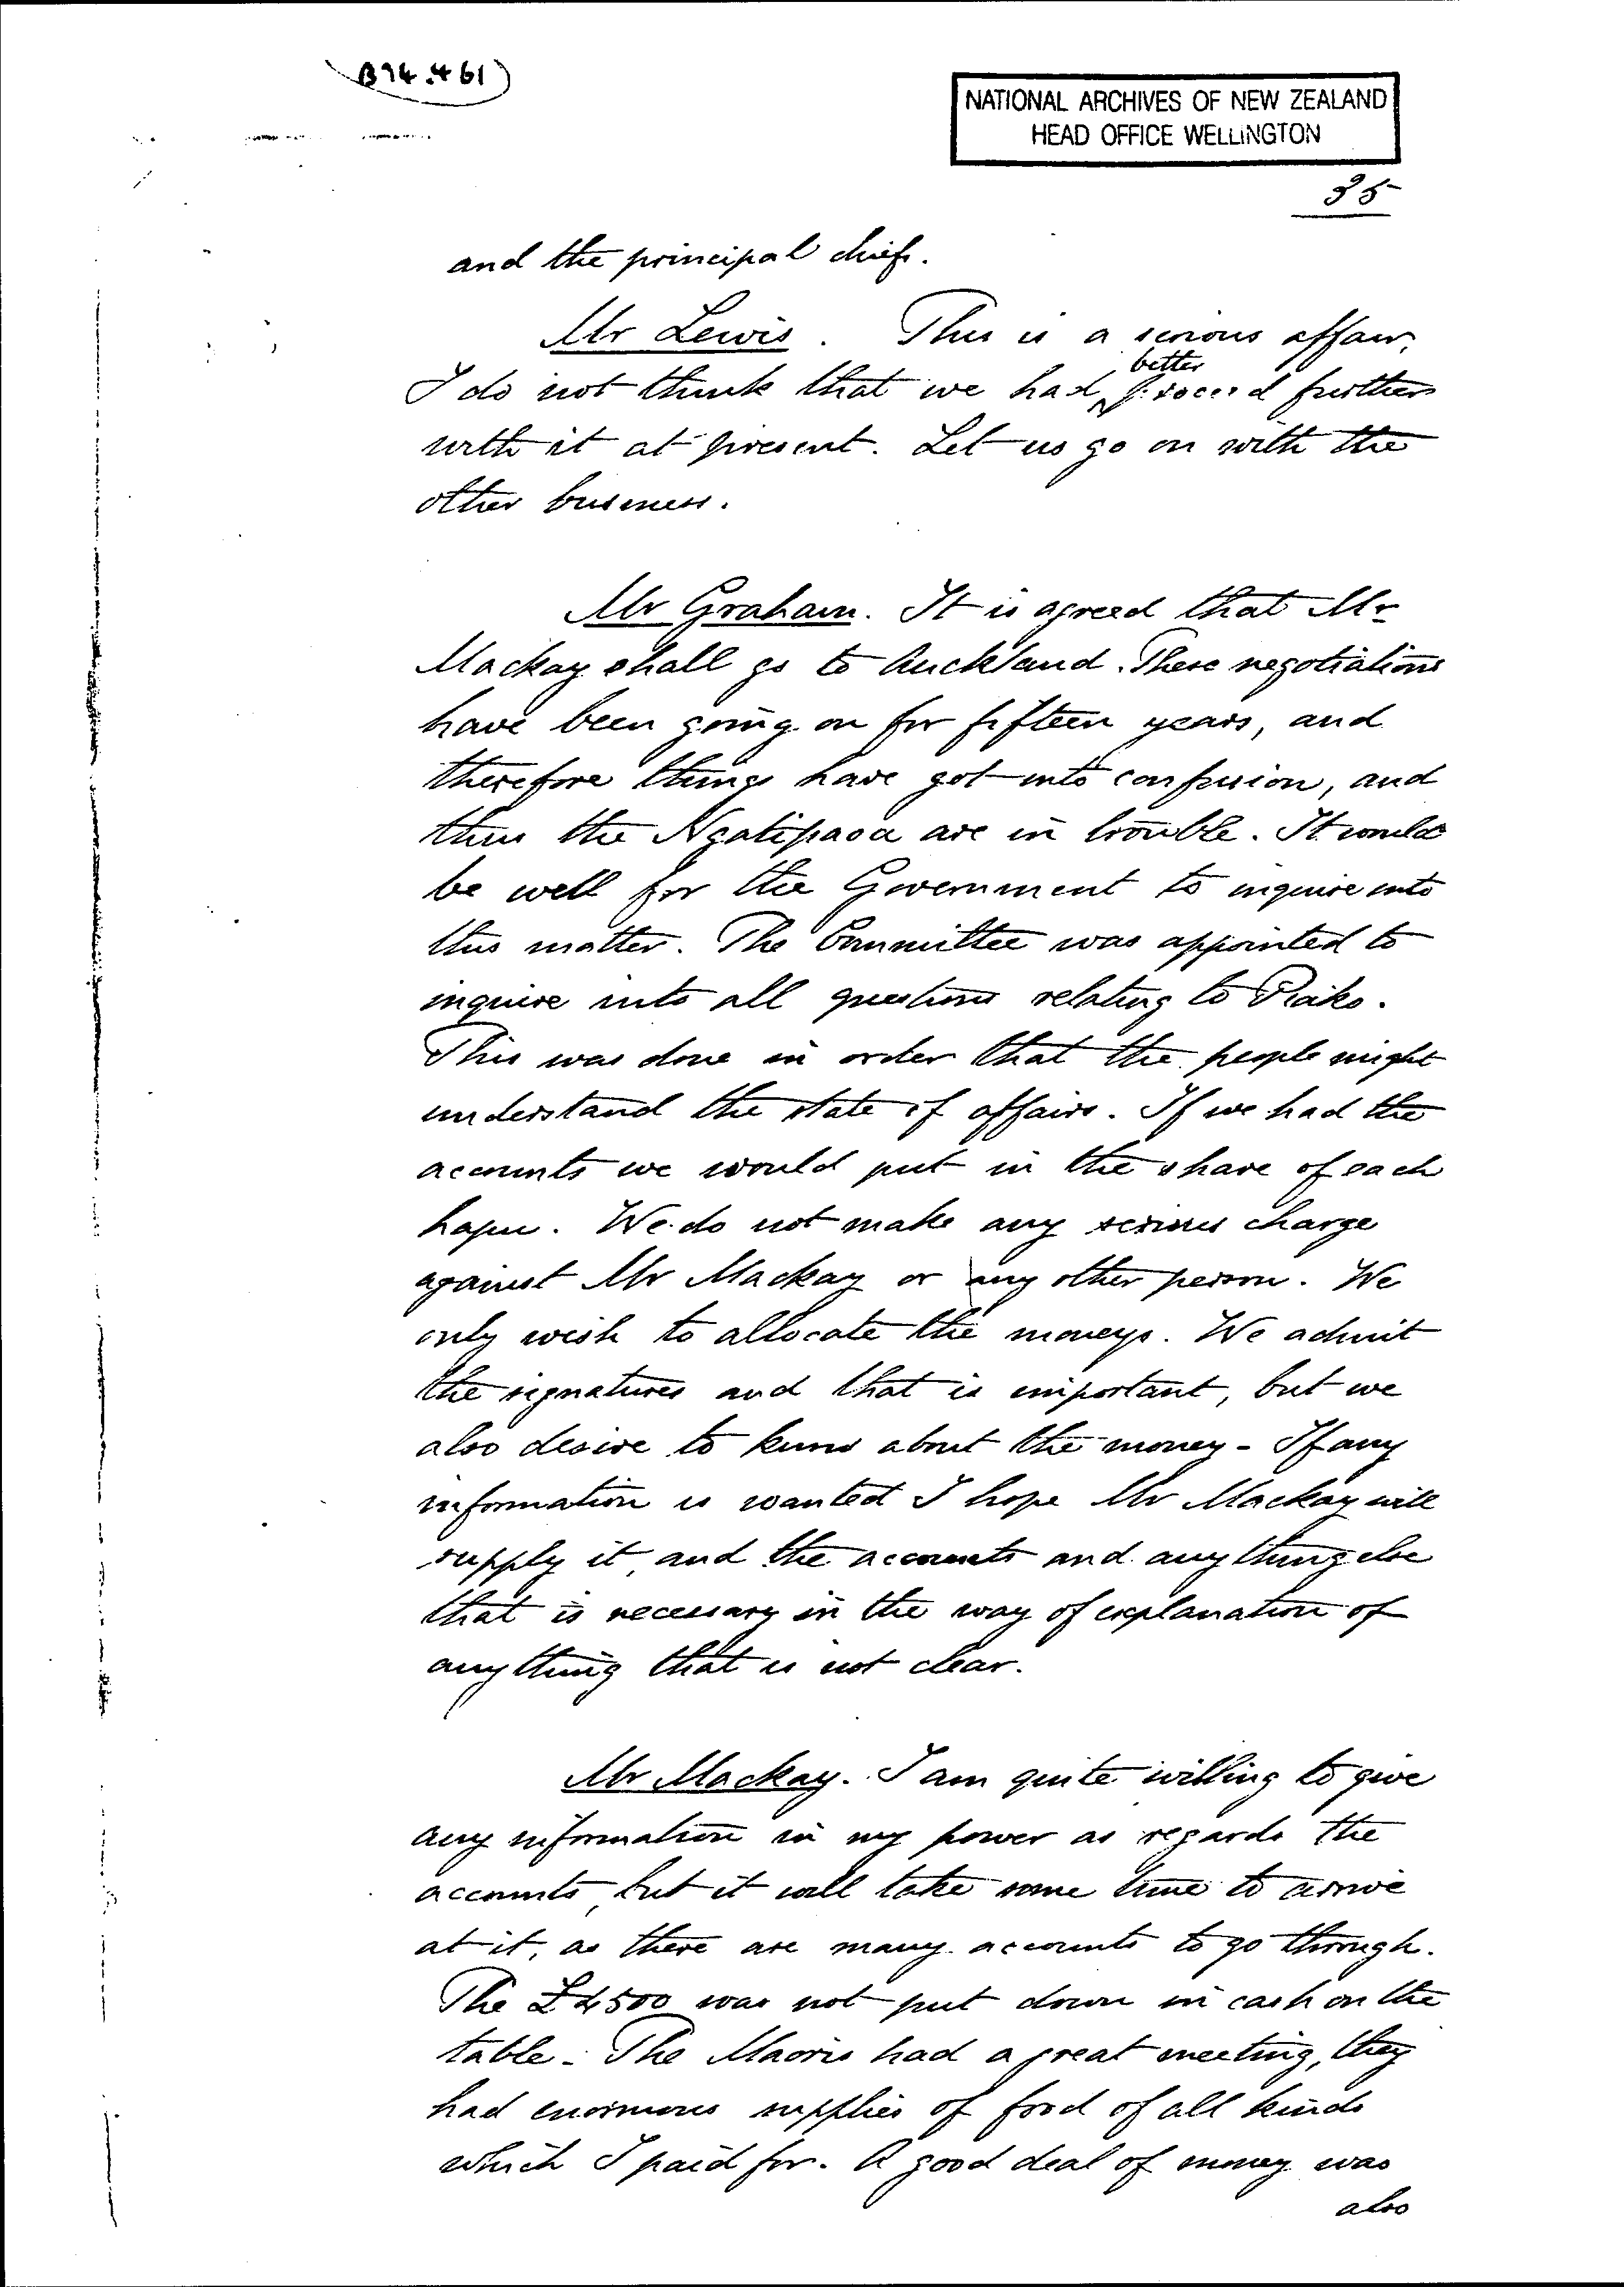 B94.461
NATIONAL ARCHIVES OF NEW ZEALAND
HEAD OFFICE WELLINGTON
35
and the principal chiefs.
Mr Lewis. This is a serious affair.
better
I do not think that we had proceed further
with it at present. Let us go on with the
other business.
Mr Graham. It is agreed that Mr
Mackay shall go to Auckland. These negotiations
have been going on for fifteen years, and
therefore things have got into confusion, and
thus the Ngatipaoa are in trouble. It would
be well for the Government to inquire into
this matter. The Committee was appointed to
inquire into all questions relating to Piako.
This was done in order that the people might
understand the state of affairs. If we had the
accounts we would put in the share of each
hapu. We do not make any serious charge
against Mr Mackay or any other person. We
only wish to allocate the moneys. We admit
the signatures and that is important, but we
also desire to know about the money - If any
information is wanted I hope Mr Mackay will
supply it, and the accounts and anything else
that is necessary in the way of explanation of
anything that is not clear.
Mr Mackay. I am quite willing to give
any information in my power as regards the
accounts, but it will take some time to arrive
at it, as there are many accounts to go through.
The £4500 was not put down in cash on the
table. The Maoris had a great meeting, they
had enormous supplies of food of all kinds
which I paid for. A good deal of money was
also